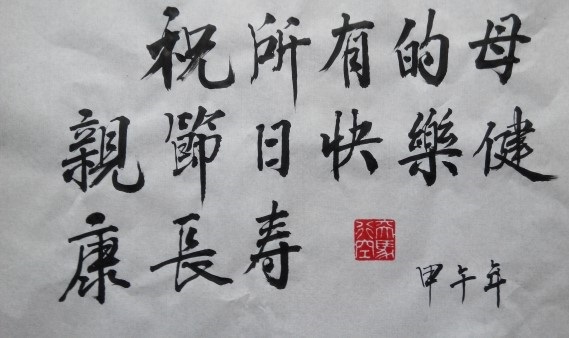 祝所有的母
親節日快樂健
康長寿
天馬行空
甲午年